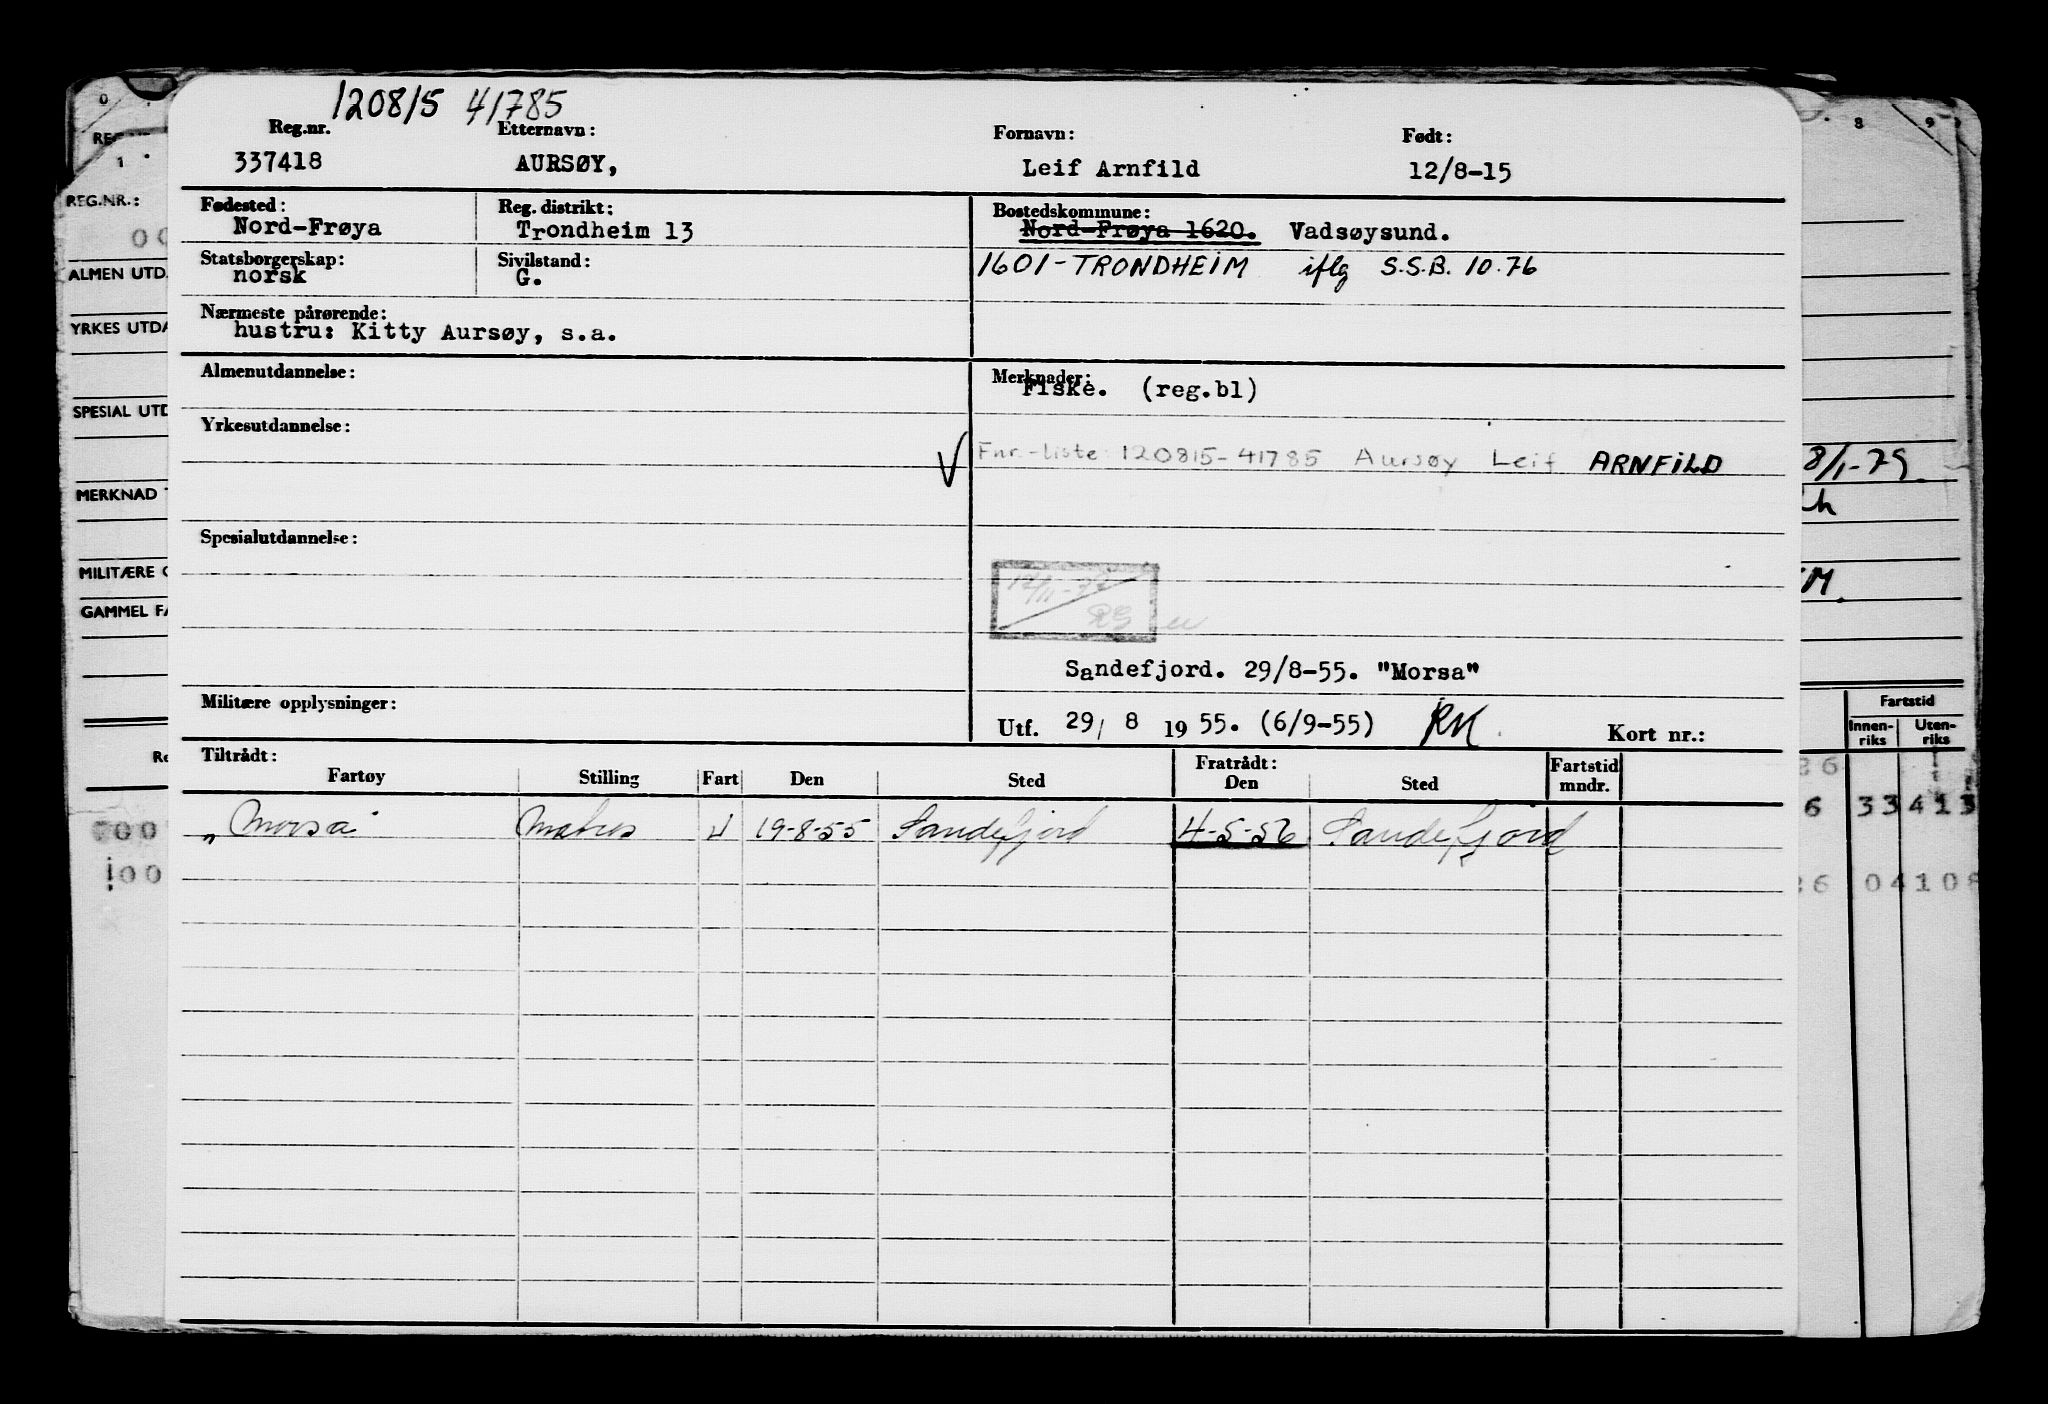 120815 41785
Reg.nr. Etternavn: Fornavn: Født:
337418 AURSØY, Leif Arnfild 12/8-15
Fødested: Reg. distrikt: Bostedskommune:
Nord-Frøya Trondheim 13 Nord-Frøya 1620. Vadsøysund.
Statsborgerskap: Sivilstand:
norsk G. 1601-TRONDHEIM iflg S.S.B. 10.76
Nærmeste pårørende:
hustru: Kitty Aursøy, s.a.
Almenutdannelse: Merknader:
Fiske. (reg.bl)
Yrkesutdannelse:
Fnr.-liste: 120815-41785 Aursøy Leif ARNFILD
Spesialutdannelse:
RG
Sandefjord. 29/8-55. "Morsa"
Militære opplysninger:
Utf. 29/ 8 1955. (6/9-55) RK. Kort nr.:
Tiltrådt: Fratrådt: Fartstid
Fartøy Stilling Fart Den Sted Den Sted mndr.
"Morsa" Matros U 19-8-55 Sandefjord 4-5-56 Sandefjord
REG.NR.:
ALMEN UTDA
YRKES UTDA
SPESIAL UTD
MERKNAD
MILITÆRE O
GAMMEL FA
8 9
8/1-79
Fartstid
Innen-riks Uten-riks
6 33413